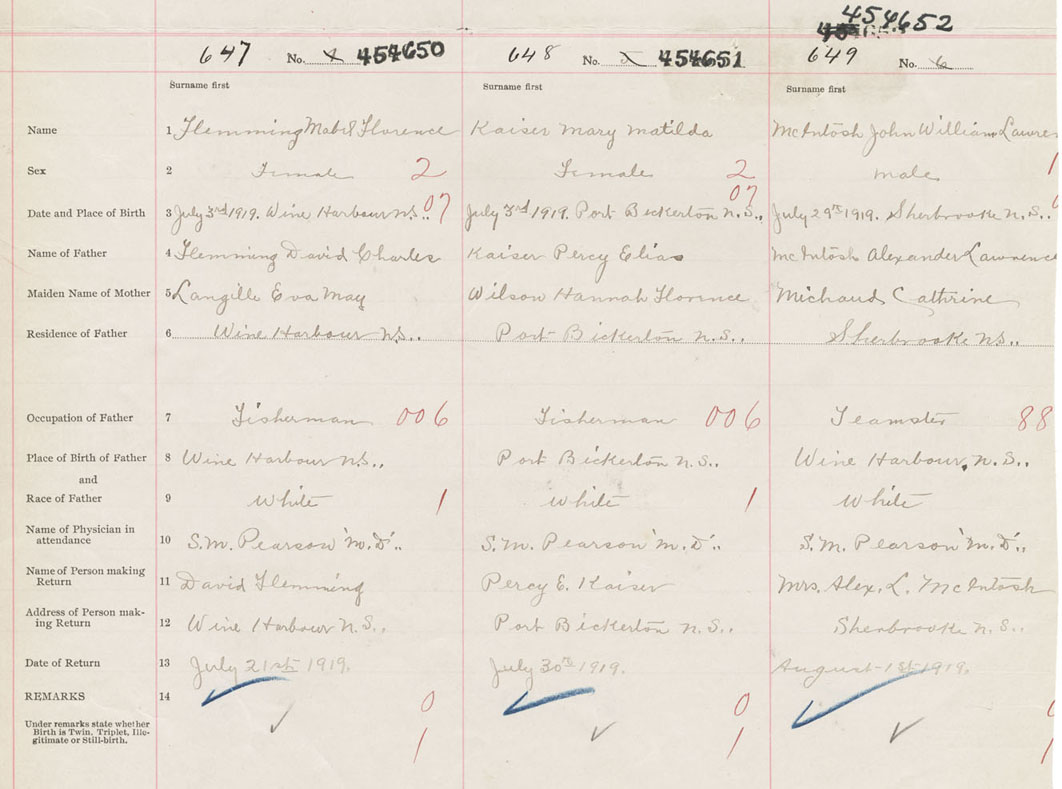 454652
647 No. 4 454650 648 No. 5 454651 649 No. 6
Surname first Surname first Surname first
Name 1 Flemming Mabel Florence Kaiser Mary Matilda McIntosh John William Lawren
Sex 2 Female 2 Female 2 male 1
Date and Place of Birth 3 July 3rd 1919. Wine Harbour N.S.. 07 July 3rd 1919. Port Bickerton N.S.. 07 July 29th 1919. Sherbrooke N.S..
Name of Father 4 Flemming David Charles Kaiser Percy Elias McIntosh Alexander Lawrence
Maiden Name of Mother 5 Langille Eva May Wilson Hannah Florence Michaud Cathrine
Residence of Father 6 Wine Harbour N.S.. Port Bickerton N.S.. Sherbrooke N.S..
Occupation of Father 7 Fisherman 006 Fisherman 006 Teamster 88
Place of Birth of Father 8 Wine Harbour N.S.. Port Bickerton N.S.. Wine Harbour, N.S..
and
Race of Father 9 White 1 White 1 White
Name of Physician in
attendance 10 S.M. Pearson "M.D".. S.M. Pearson "M.D".. S.M. Pearson "M.D"..
Name of Person making
Return 11 David Flemming Percy E. Kaiser Mrs. Alex. L. McIntosh
Address of Person mak-
ing Return 12 Wine Harbour N.S.. Port Bickerton N.S.. Sherbrooke N.S..
Date of Return 13 July 21st 1919. July 30th 1919. August 1st 1919.
REMARKS 14 0 0
Under remarks state whether
Birth is Twin, Triplet, Ille-
gitimate or Still-birth. 1 1 1